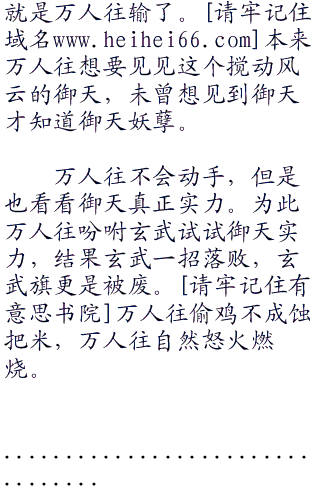 就是万人往输了。[请牢记住
域名www.heihei66.com]本来
万人往想要见见这个搅动风
云的御天，未曾想见到御天
才知道御天妖孽。
万人往不会动手，但是
也看看御天真正实力。为此
万人往吩咐玄武试试御天实
力，结果玄武一招落败，玄
武旗更是被废。[请牢记住有
意思书院]万人往偷鸡不成蚀
把米，万人往自然怒火燃
烧。
.........................
........